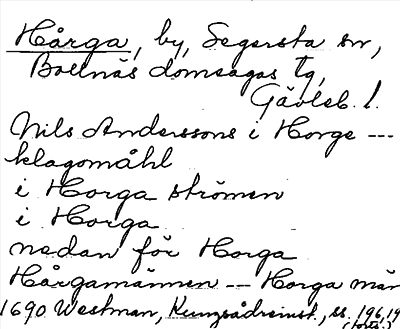 Hårga, by, Segersta sn,
Bollnäs domsagas tg,
Gävleb. l.
Nils Anderssons i Horge ---
klagomåhl
i Horga strömen
i Horga
nedan för Horga
Hårgamännen -- Horga män
1690 Westman, ss. 196, 19
(forts.)